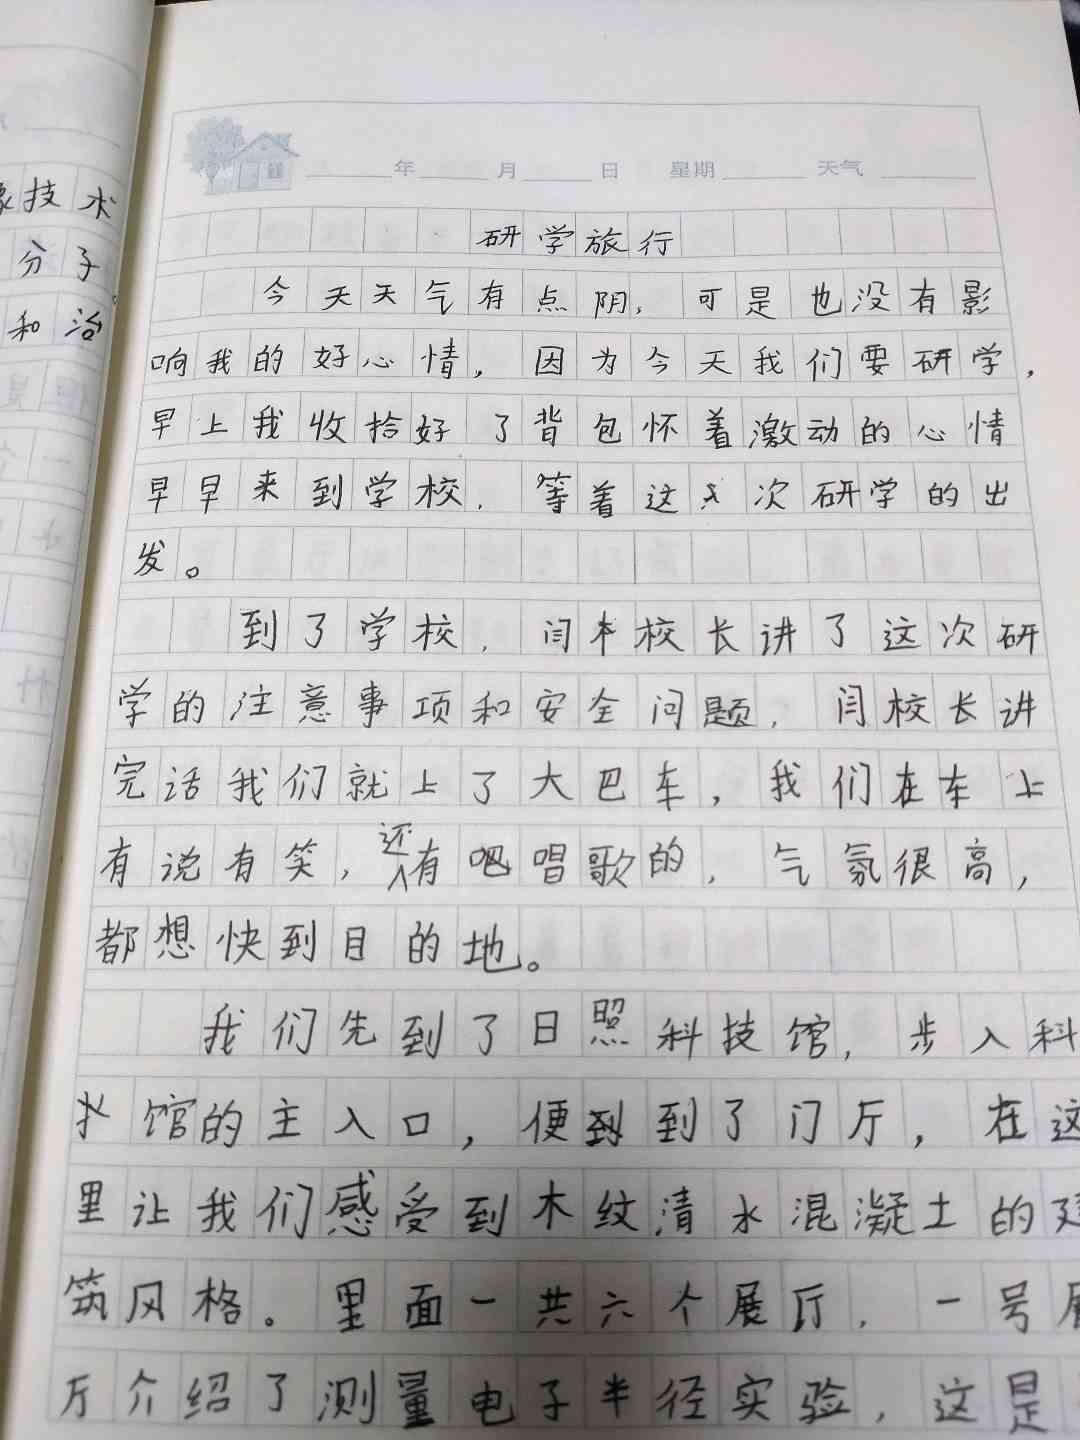 技术
分子
和治
年 月 日 星期 天气
研学旅行
今天天气有点阴，可是也没有影
响我的好心情，因为今天我们要研学，
早上我收拾好了背包怀着激动的心情
早早来到学校，等着这次研学的出
发。
到了学校，闫校长讲了这次研
学的注意事项和安全问题，闫校长讲
完话我们就上了大巴车，我们在车上
有说有笑，还有唱歌的，气氛很高，
都想快到目的地。
我们先到了日照科技馆，步入科
技馆的主入口，便到了门厅，在这
里让我们感受到木纹清水混凝土的建
筑风格。里面一共六个展厅，一号展
厅介绍了测量电子半径实验，这是